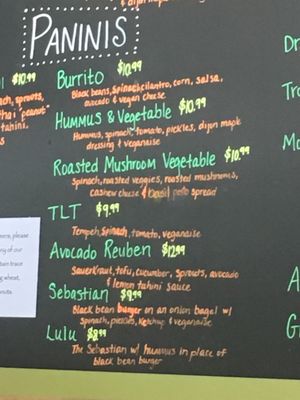 dijon map
PANINIS
$10.99
Burrito $10.99
Black beans, spinach, cilantro, corn, salsa,
avocado & vegan cheese
sprouts,
thai "peanut"
tahini.
Hummus & Vegetable $10.99
Hummus, spinach, tomato, pickles, dijon maple
dressing & veganaise
Roasted Mushroom Vegetable $10.99
Spinach, roasted veggies, roasted mushrooms,
cashew cheese & basil pesto spread
TLT $9.99
Tempeh, Spinach, tomato, veganaise
Avocado Reuben $12.99
Sauerkraut, tofu, cucumber, sprouts, avocado
& lemon tahini sauce
Sebastian $9.99
Black bean burger on an onion bagel w/
Spinach, pickles, Ketchup & veganaise
Lulu $8.99
The Sebastian w/ hummus in place of
black bean burger
please
ny of our
tain trace
g wheat,
nuts.
Dr
Tro
Mo
A
G